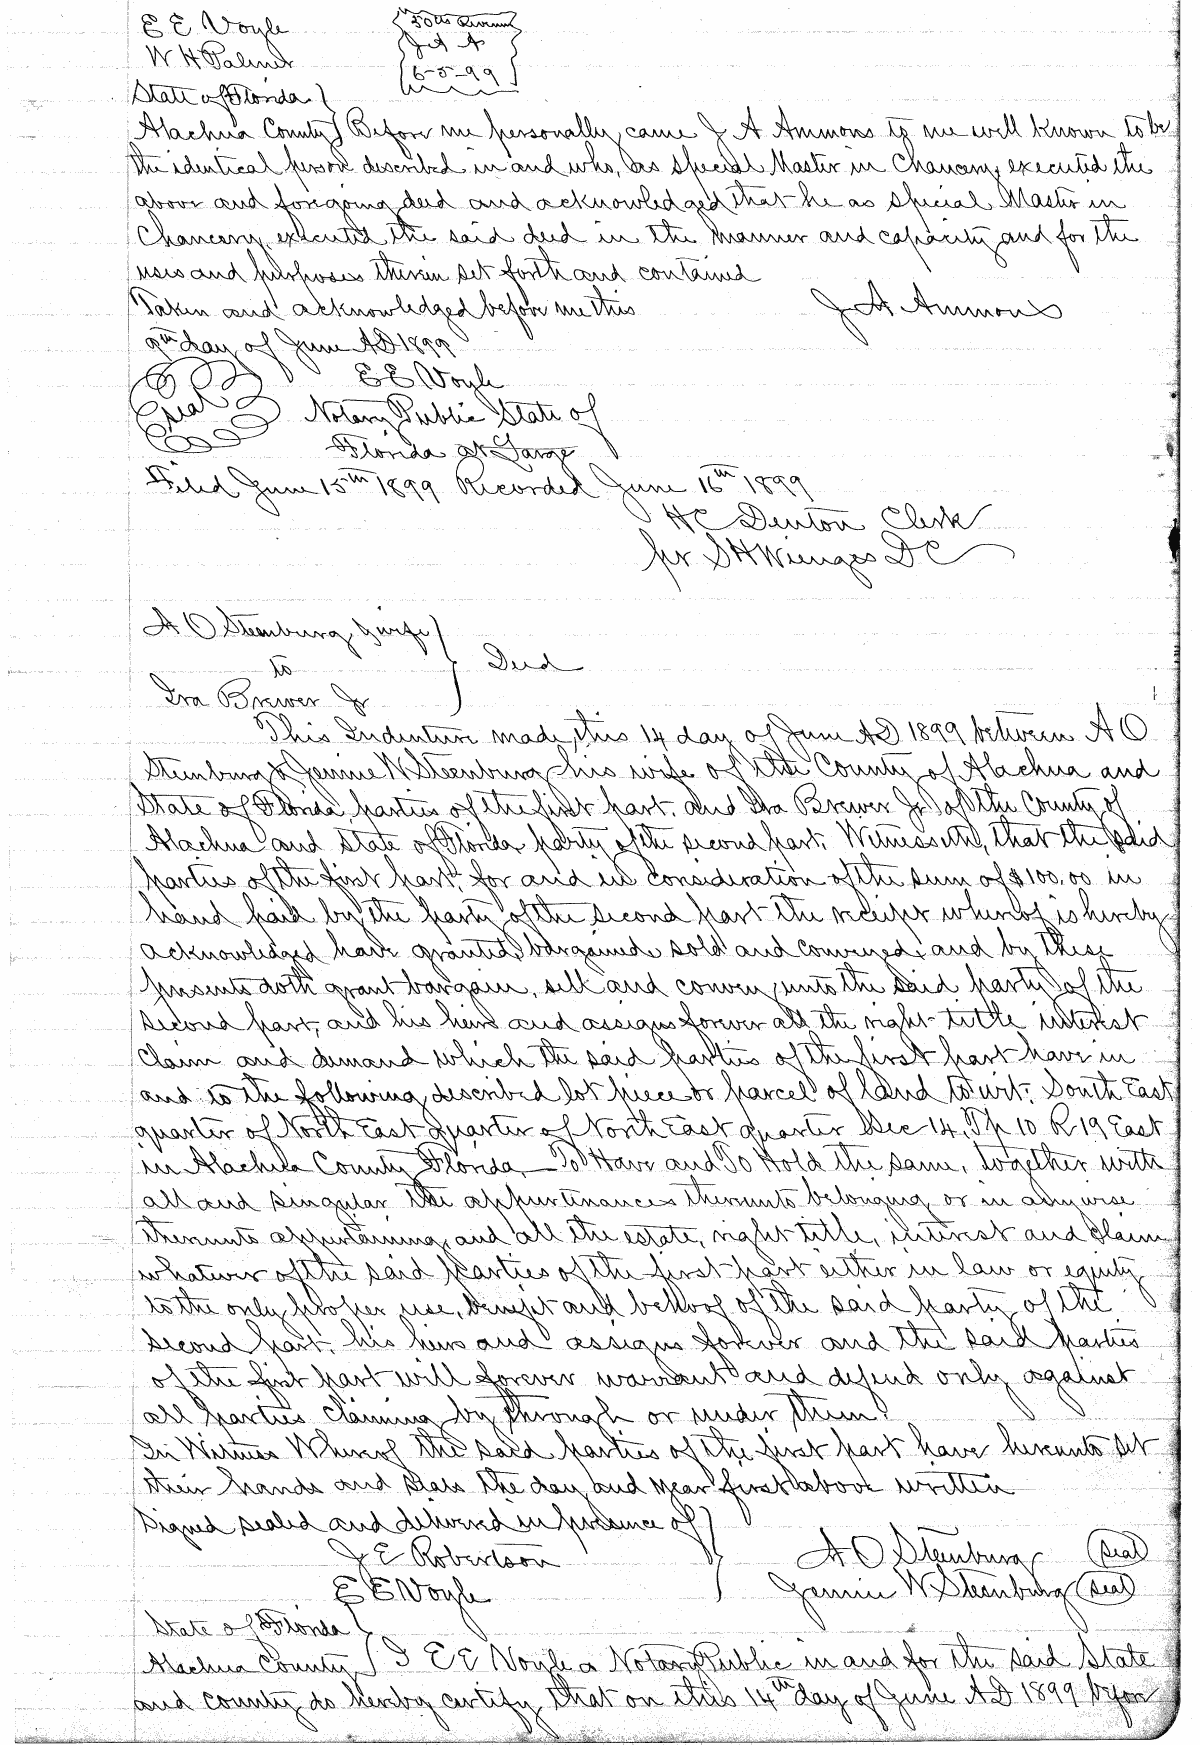 E E Voyle
W H Palmer
50cts Revenue
J A A
6-5-99
State of Florida
Alachua County Before me personally came J A Ammons to me well known to be
the identical person described in and who, as Special Master in Chancery executed the
above and foregoing deed and acknowledged that he as Special Master in
Chancery executed the said deed in the manner and capacity and for the
uses and purposes therein set forth and contained
Taken and acknowledged before me this
J A Ammons
9th day of June AD 1899
E E Voyle
Seal
Notary Public State of
Florida at Large
Filed June 15th 1899 Recorded June 16th 1899
H C Denton Clerk
per S H Wienges D C
A O Steenburg & wife
to
Deed
Ira Brewer Jr
This Indenture made, this 14 day of June AD 1899 between A O
Steenburg & Jennie W Steenburg his wife of the County of Alachua and
State of Florida, parties of the first part, and Ira Brewer Jr. of the County of
Alachua and State of Florida party of the second part, Witnesseth, that the said
parties of the first part, for and in consideration of the sum of $100.00 in
hand paid by the party of the second part the receipt whereof is hereby
acknowledged have granted, bargained sold and conveyed, and by these
presents doth grant bargain, sell and convey unto the said party of the
second part, and his heirs and assigns forever all the right title interest
claim and demand which the said parties of the first part have in
and to the following described lot piece or parcel of land to wit: South East
quarter of North East quarter of North East quarter Sec 14, Tp 10 R 19 East
in Alachua County Florida, To Have and To Hold the same, together with
all and singular the appurtinances thereunto belonging or in anywise
thereunto appertaining, and all the estate, right title, interest and claim
whatever of the said parties of the first part either in law or equity
to the only proper use, benefit and behoof of the said party of the
second part, his heirs and assigns forever and the said parties
of the first part will forever warrant and defend only against
all parties claiming by through or under them.
In Witness Whereof the said parties of the first part have hereunto set
their hands and seals the day and year first above written
Signed sealed and delivered in presence of
J E Robertson
A O Steenburg Seal
E E Voyle
Jennie W Steenburg Seal
State of Florida
Alachua County I E E Voyle a Notary Public in and for the said State
and county do hereby certify that on this 14th day of June AD 1899 before